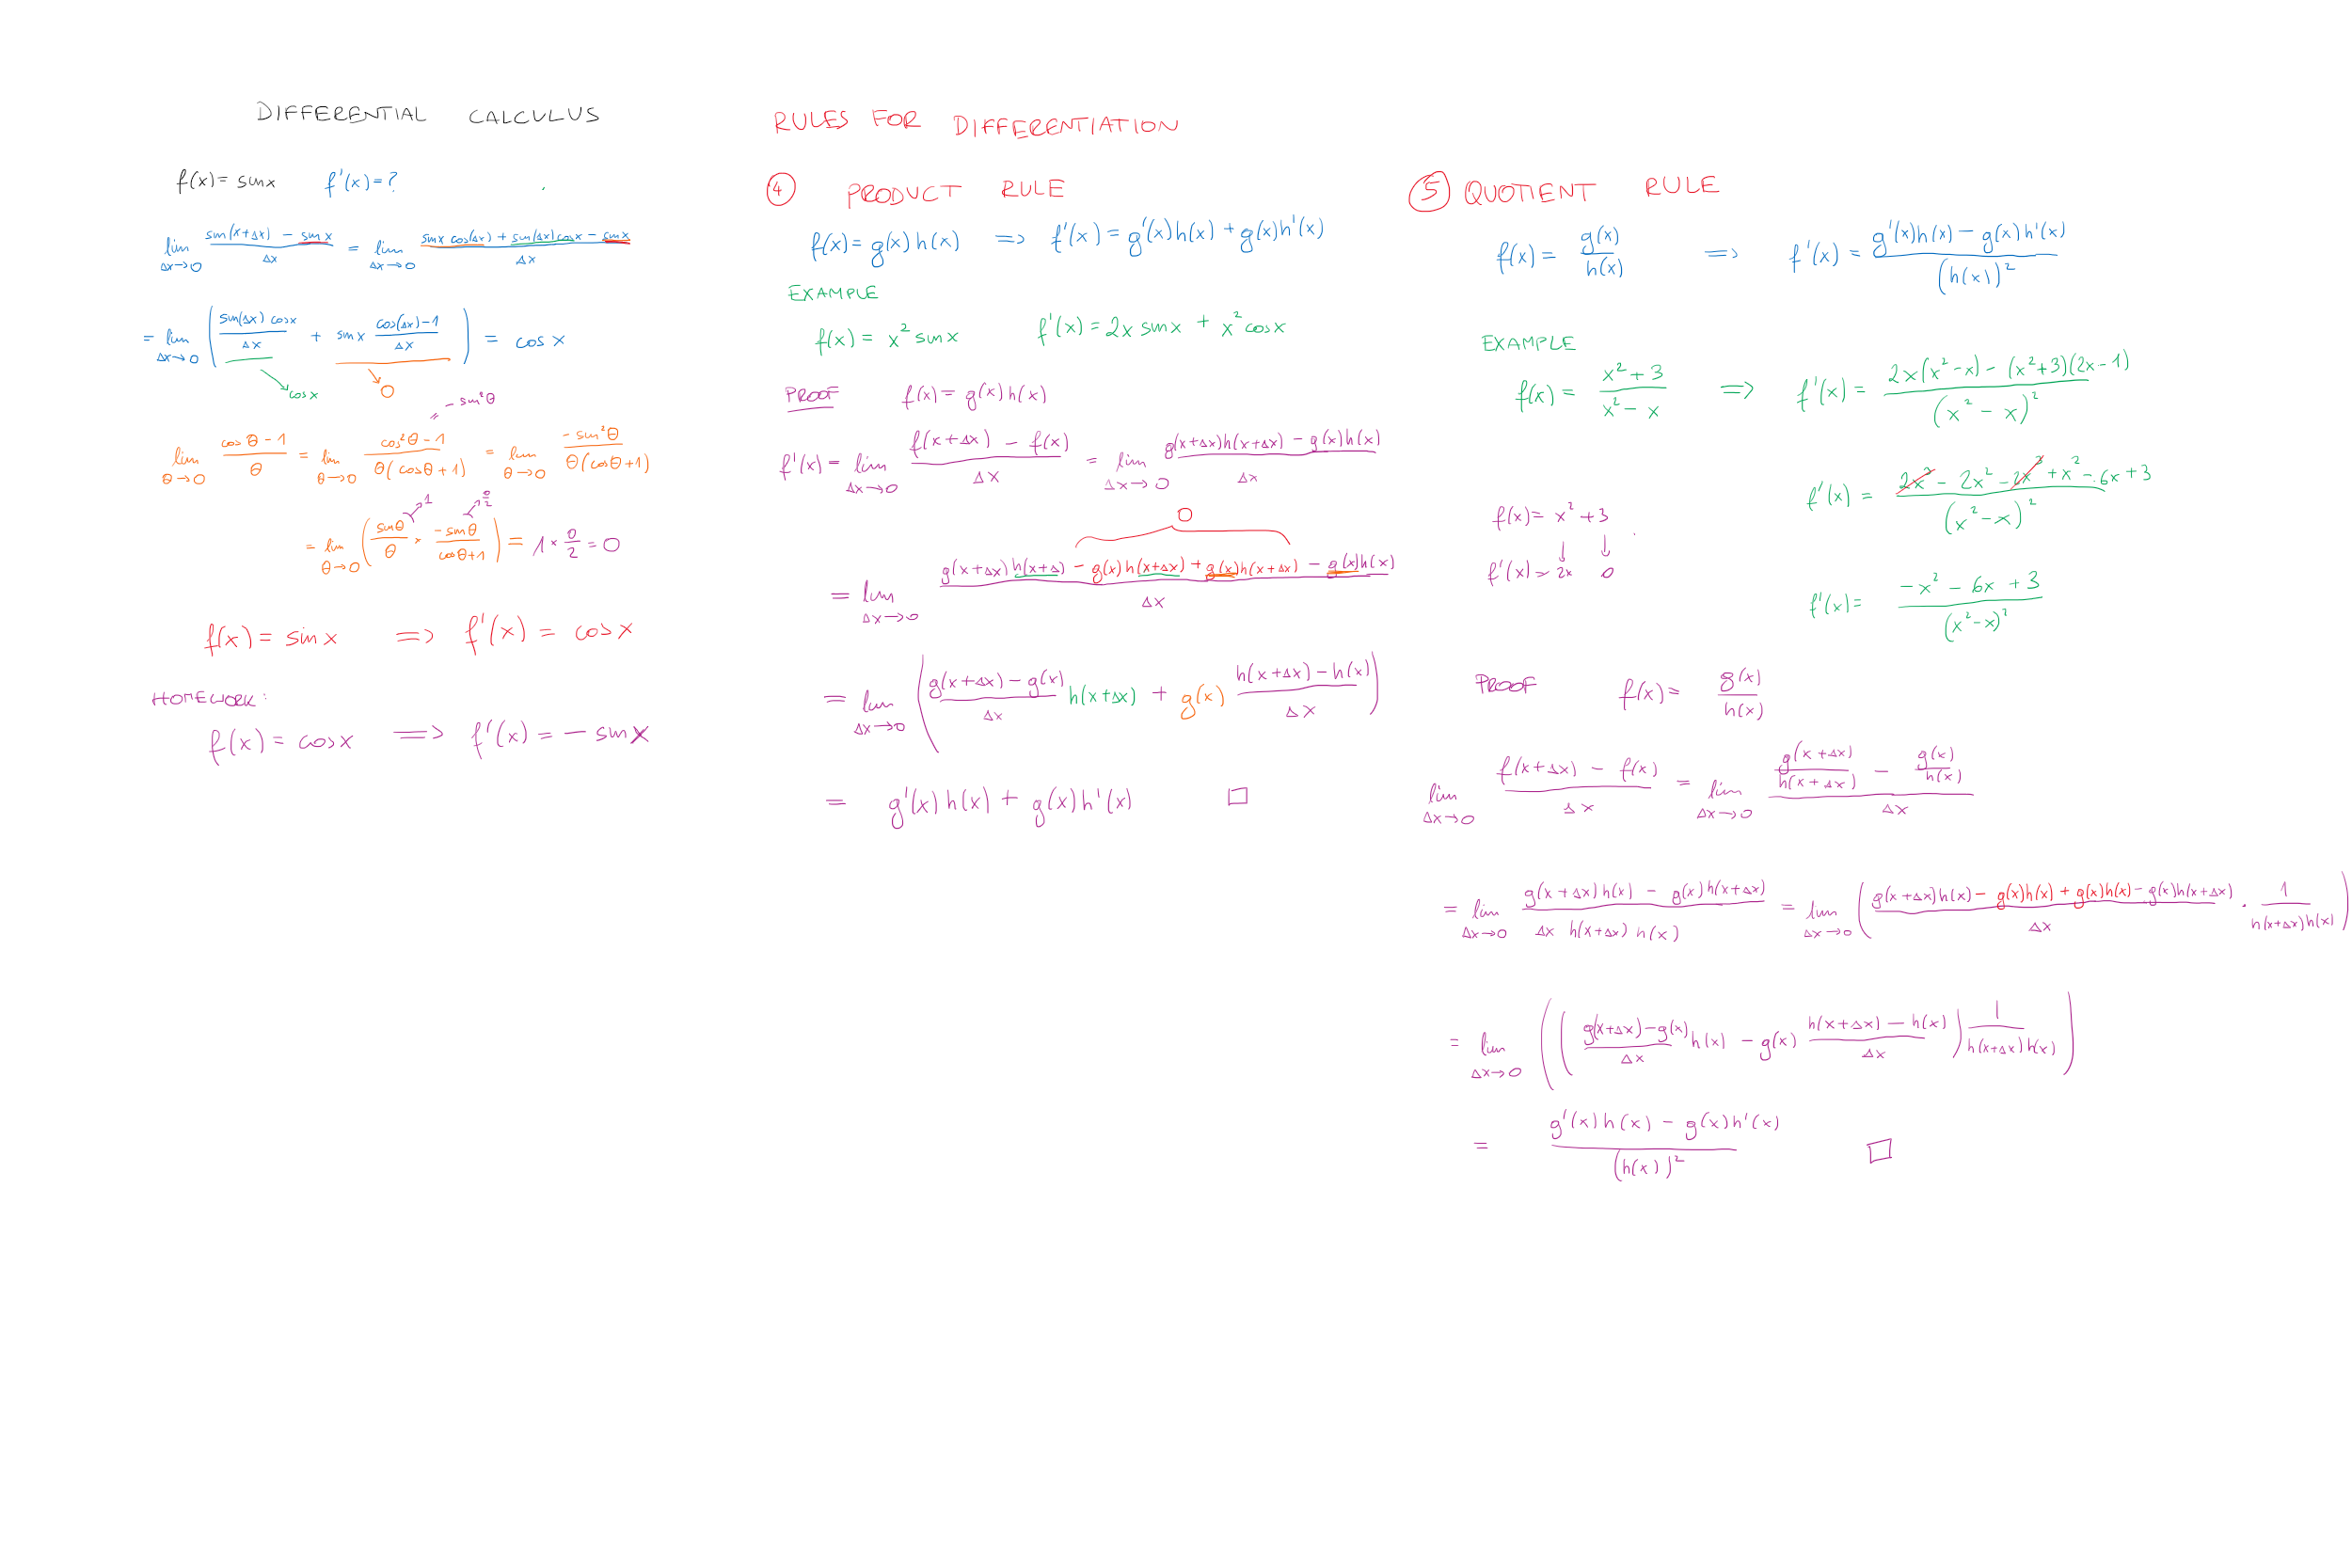 DIFFERENTIAL CALCULUS
f(x) = sin x f'(x) = ?
lim Δx→0 (sin(x+Δx) − sin x)/Δx = lim Δx→0 (sin x cos(Δx) + sin(Δx) cos x − sin x)/Δx
= lim Δx→0 ( sin(Δx) cos x/Δx + sin x (cos(Δx)−1)/Δx ) = cos x
cos x 0
= − sin²θ
lim θ→0 (cos θ − 1)/θ = lim θ→0 (cos²θ − 1)/(θ(cosθ + 1)) = lim θ→0 (− sin²θ)/(θ(cosθ+1))
1 0/2
= lim θ→0 ( sinθ/θ × (− sinθ)/(cosθ+1) ) = 1 × 0/2 = 0
f(x) = sin x => f'(x) = cos x
HOMEWORK:
f(x) = cos x => f'(x) = − sin x
RULES FOR DIFFERENTIATION
4 PRODUCT RULE
f(x) = g(x) h(x) => f'(x) = g'(x) h(x) + g(x) h'(x)
EXAMPLE
f(x) = x² sin x f'(x) = 2x sin x + x² cos x
PROOF f(x) = g(x) h(x)
f'(x) = lim Δx→0 (f(x+Δx) − f(x))/Δx = lim Δx→0 (g(x+Δx)h(x+Δx) − g(x)h(x))/Δx
0
= lim Δx→0 (g(x+Δx) h(x+Δ) − g(x) h(x+Δx) + g(x) h(x+Δx) − g(x)h(x))/Δx
= lim Δx→0 ( (g(x+Δx) − g(x))/Δx h(x+Δx) + g(x) (h(x+Δx) − h(x))/Δx )
= g'(x) h(x) + g(x) h'(x) □
5 QUOTIENT RULE
f(x) = g(x)/h(x) => f'(x) = (g'(x)h(x) − g(x) h'(x))/(h(x))²
EXAMPLE
f(x) = (x² + 3)/(x² − x) => f'(x) = (2x(x² − x) − (x²+3)(2x−1))/(x² − x)²
f'(x) = (2x³ − 2x² − 2x³ + x² − 6x + 3)/(x² − x)²
f(x) = x² + 3
f'(x) = 2x 0
f'(x) = (−x² − 6x + 3)/(x² − x)²
PROOF f(x) = g(x)/h(x)
lim Δx→0 (f(x+Δx) − f(x))/Δx = lim Δx→0 (g(x+Δx)/h(x+Δx) − g(x)/h(x))/Δx
= lim Δx→0 (g(x+Δx) h(x) − g(x) h(x+Δx))/(Δx h(x+Δx) h(x)) = lim Δx→0 ( (g(x+Δx)h(x) − g(x)h(x) + g(x)h(x) − g(x)h(x+Δx))/Δx · 1/(h(x+Δx)h(x)) )
= lim Δx→0 ( ( (g(x+Δx) − g(x))/Δx h(x) − g(x) (h(x+Δx) − h(x))/Δx ) 1/(h(x+Δx) h(x)) )
= (g'(x) h(x) − g(x) h'(x))/(h(x))² □